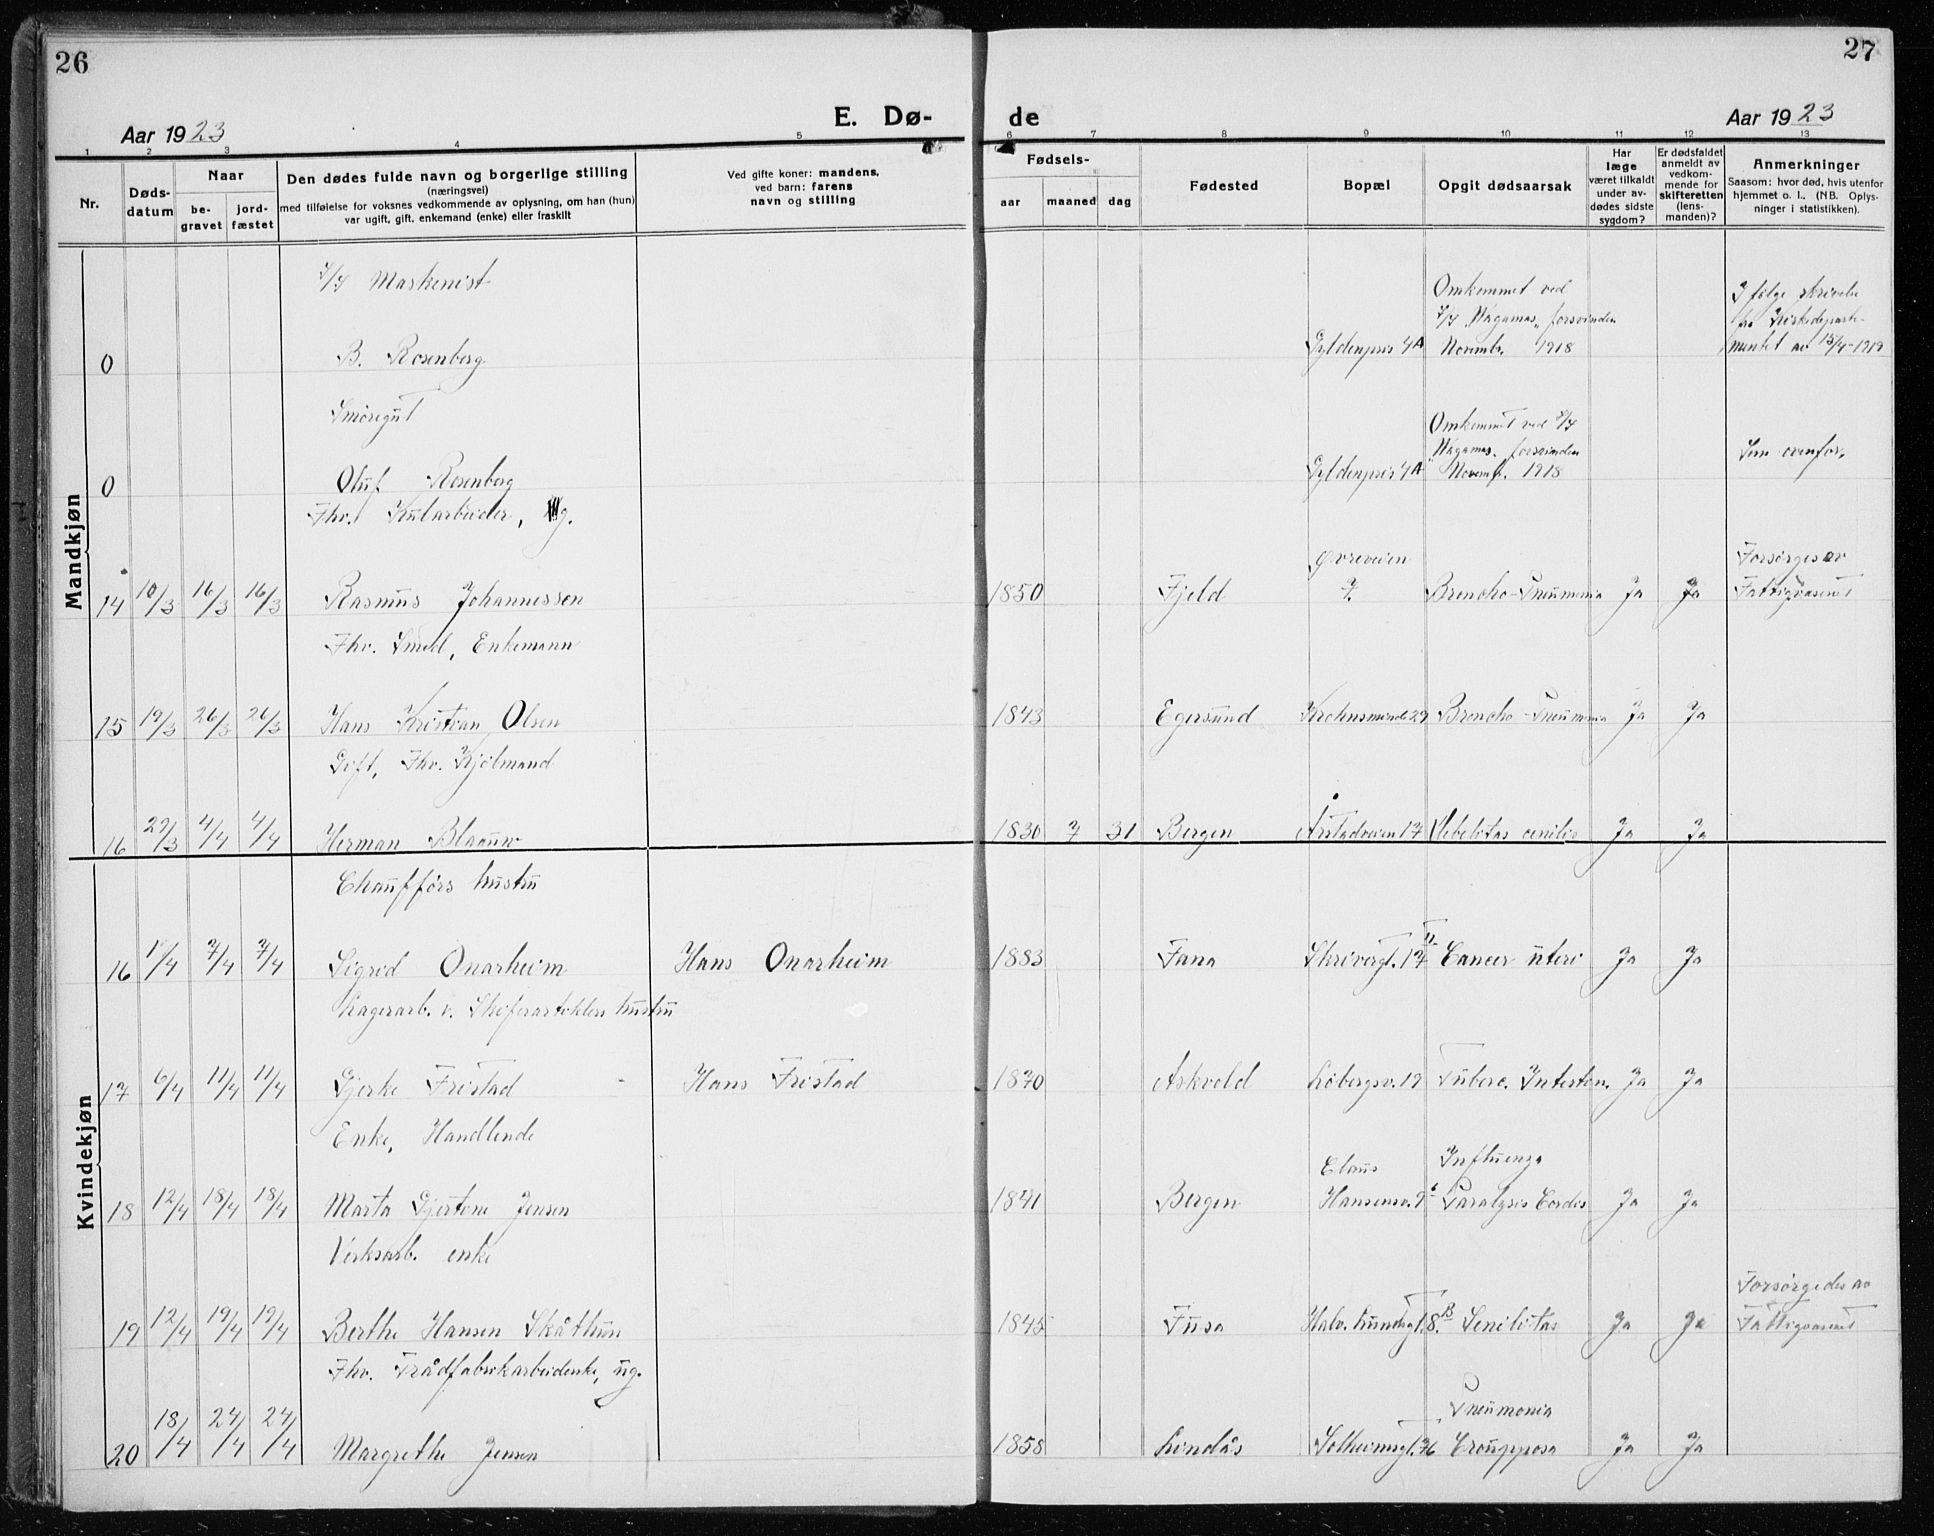 26
27
E. Dø-
de
Aar 1923
Aar 1923
1 2 3 4 5 6 7 8 9 10 11 12 13
Nr.
Døds-
datum
Naar
be-
gravet
jord-
fæstet
Den dødes fulde navn og borgerlige stilling
(næringsvei)
med tilføielse for voksnes vedkommende av oplysning, om han (hun)
var ugift, gift, enkemand (enke) eller fraskilt
Ved gifte koner: mandens,
ved barn: farens
navn og stilling
Fødsels-
aar maaned dag
Fødested
Bopæl
Opgit dødsaarsak
Har
læge
været tilkaldt
under av-
dødes sidste
sygdom?
Er dødsfaldet
anmeldt av
vedkom-
mende for
skifteretten
(lens-
manden)?
Anmerkninger
Saasom: hvor død, hvis utenfor
hjemmet o. l., (NB. Oplys-
ninger i statistikken).
Mandkjøn
Maskenist
Omkommet ved
I følge skrivelse
"Wagamas" forsvinden
fra Kirkedeparte-
0 B. Rosenberg Gyldenpris 4A Novembr. 1918 mentet av 15/4-1919
Smøregut
Omkommet ved
"Wagamas" forsvinden
Sem ovenfor.
0 Oluf Rosenberg Gyldenpris 4A Novemb. 1918
Fhv. Kularbeider, ug.
Øvreveien
Forsørges av
14 10/3 16/3 16/3 Rasmus Johannessen 1850 Fjeld 7. Broncho-Pneumonia Ja Ja Fattigvæsenet
Fhv. Smed, Enkemann
15 19/3 26/3 26/3 Hans Kristian Olsen 1843 Egersund Krohnsminde 29 Broncho-Pneumonia Ja Ja
Gift, Fhv. Kjølmand
16 29/3 4/4 4/4 Herman Blaauw 1830 7 31 Bergen Årstadveien 17 Debelitas cenilis Ja Ja
Kvindekjøn
Chaufførs hustru
16 1/4 7/4 7/4 Sigrid Onarheim Hans Onarheim 1883 Fana Skrivergt. 17 II Cancer uteri Ja Ja
Lagerarb. v. Skiferartiklers hustru
17 6/4 11/4 11/4 Gjerke Fristad Hans Fristad 1870 Askvold Løbergsv. 19 Tuberc. Intestin. Ja Ja
Enke, Handlende
Claus
Influenza
18 12/4 18/4 18/4 Marta Gjertine Jensen 1841 Bergen Hansensv. 9 Paralysis Cordis Ja Ja
Verksarb. enke
Forsørgedes av
19 12/4 19/4 19/4 Berthe Hansen Skåthun 1845 Fusa 8.B Senilitas Ja Ja Fattigvæsenet
Fhv. Trådfabrikarbeiderske, ug.
Pneumonia
20 18/4 24/4 24/4 Margrethe Jensen 1858 Lindås Solheimsgt. 76 Croupposa Ja Ja